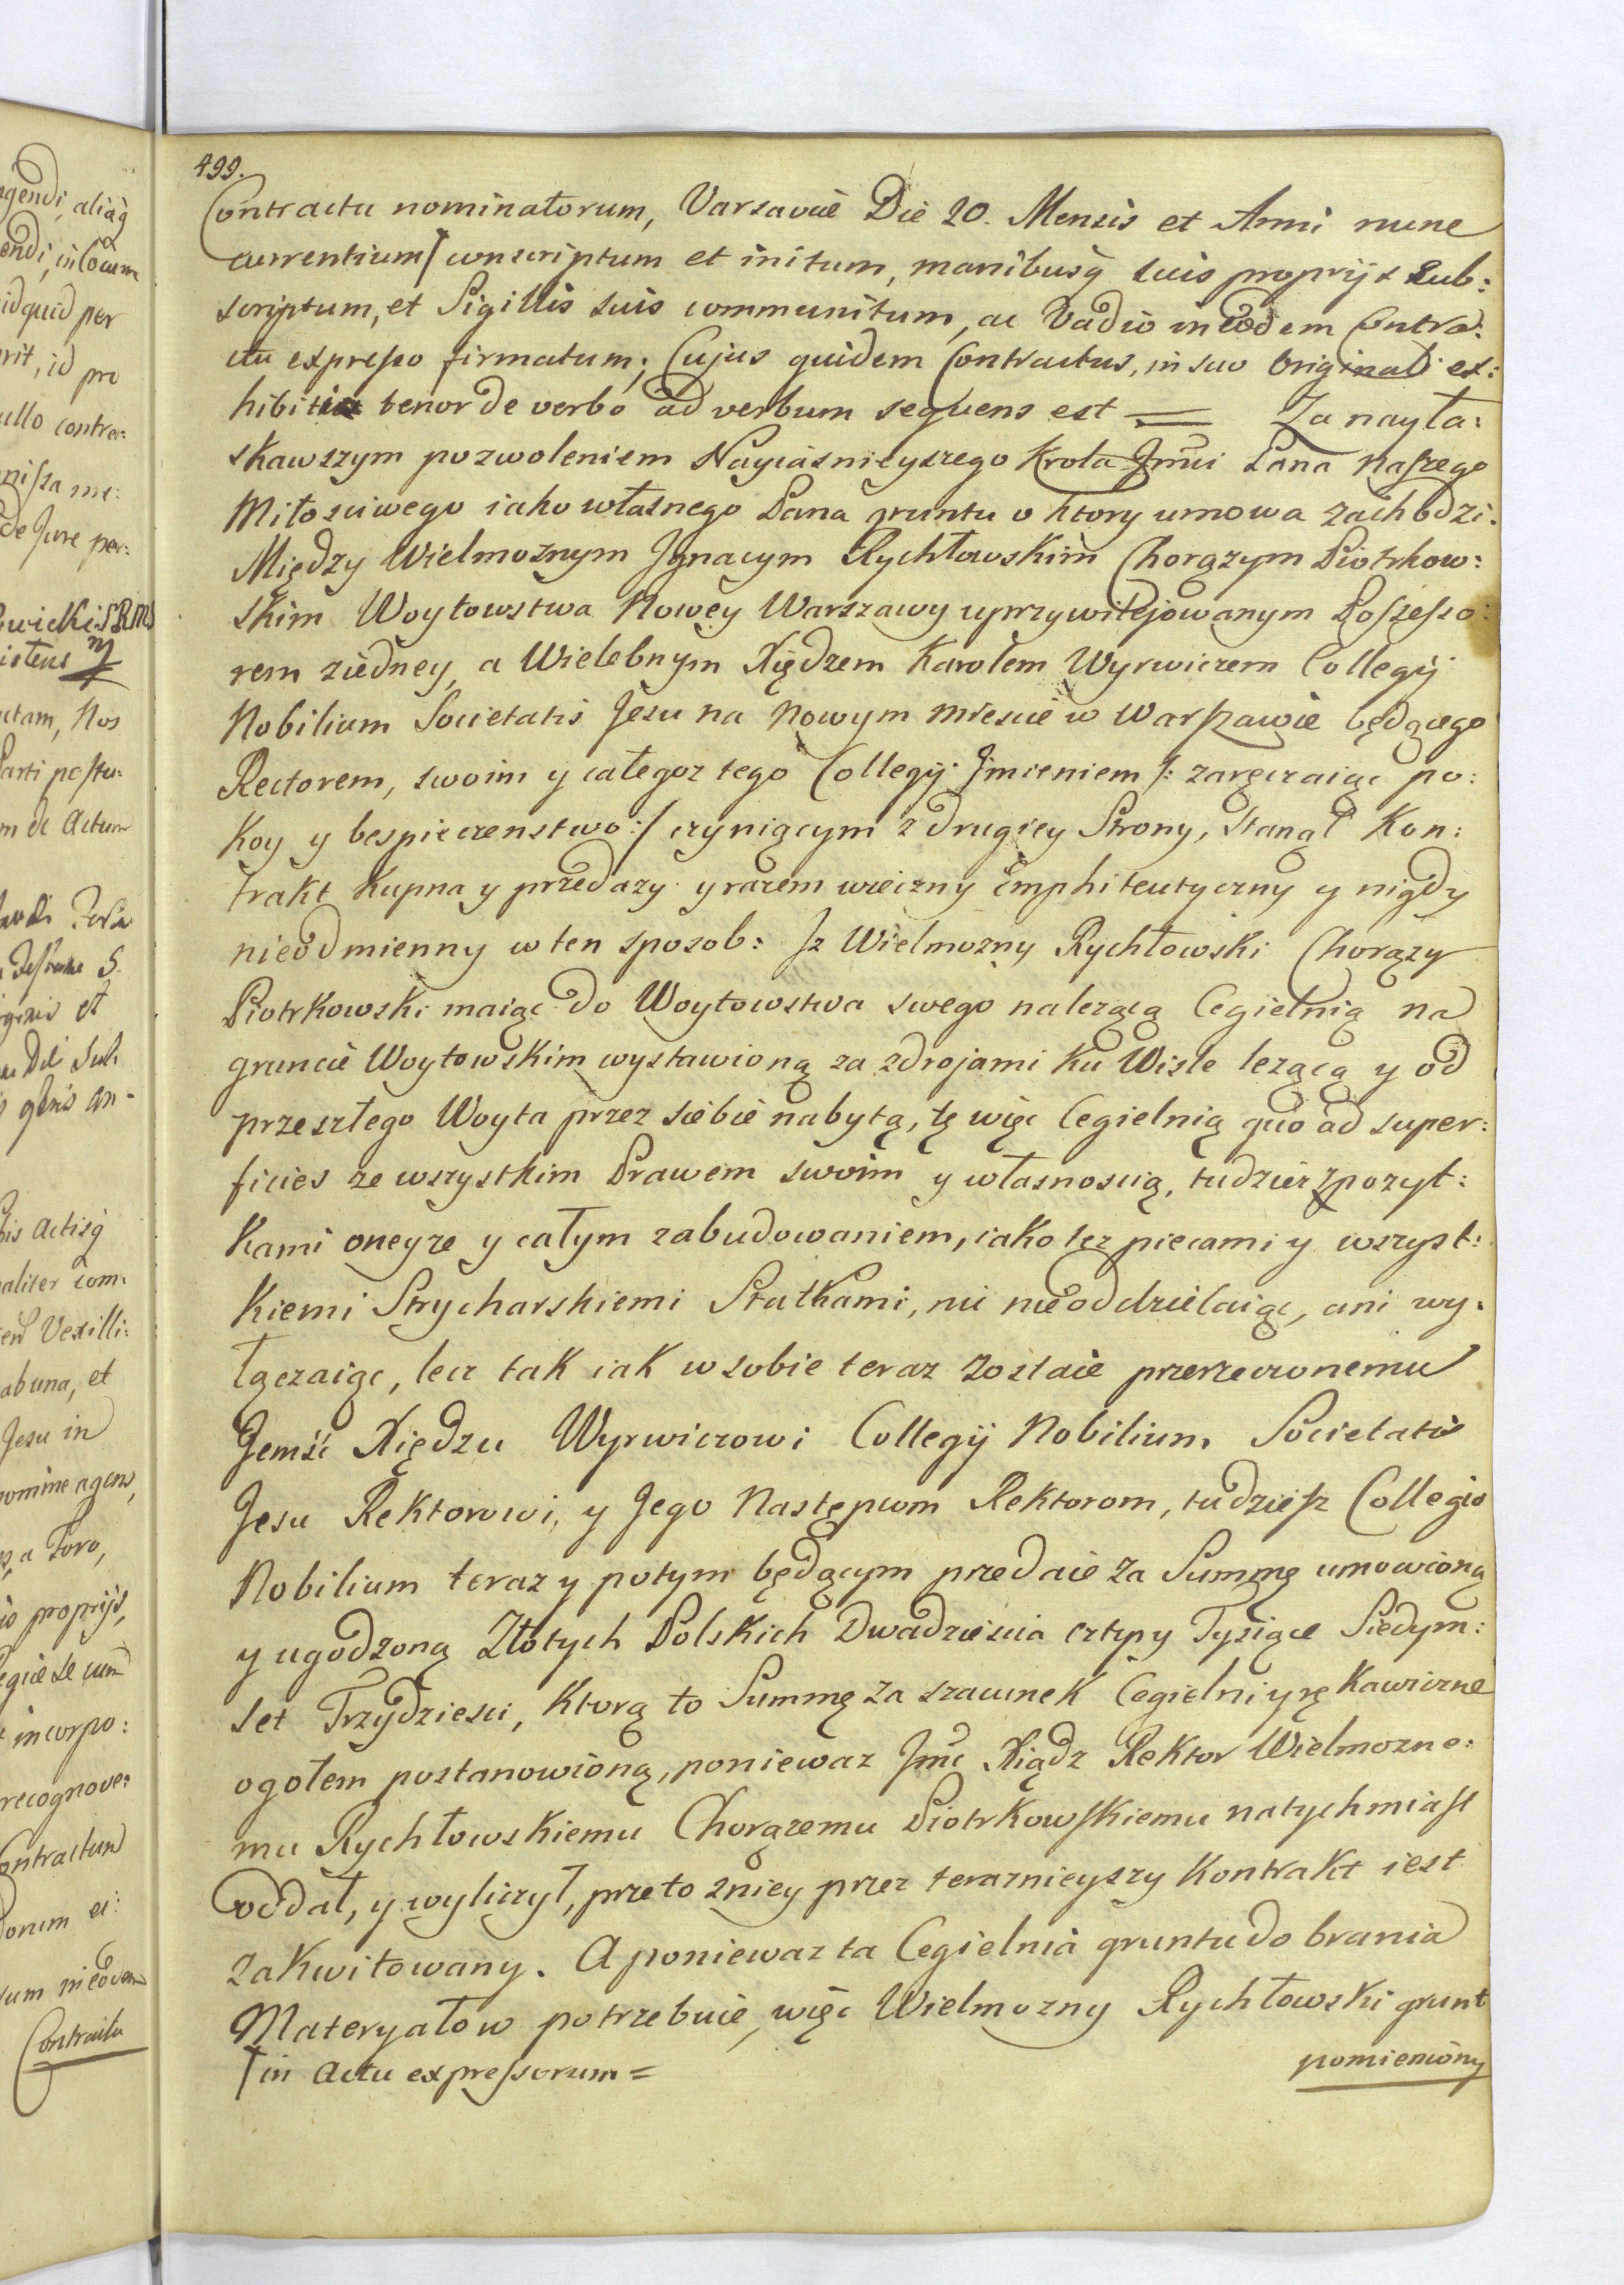 499.
Contractu nominatorum, Varsaviæ Die 20. Mensis et Anni nunc
currentium† conscriptum et initum, manibusq̃ suis proprijs sub:
scriptum, et Sigillis suis communitum, ac Vadio in eodem Contra:
ctu expresso firmatum; Cujus quidem Contractus, in suo Originali ex:
hibiti tenor de verbo ad verbum sequens est = Za nayła:
skawszym pozwoleniem Nayiasnieyszego Krola Jmći Pana Naszego
Miłosciwego iako własnego Pana gruntu o ktory umowa zachodzi.
Między Wielmoznym Jgnacym Rychłowskim Chorązym Piotrkow:
skim Woytowstwa Nowey Warszawy uprzywilejowanym Possesso:
rem ziedney, a Wielebnym Xiędzem Karolem Wyrwiczem Collegij
Nobilium Societatis Jesu na Nowym Miescie w Warszawie będącego
Rectorem, swoim y całegoz tego Collegij Jmieniem /: zaręczaiąc po:
koy y bespieczenstwo :/ czyniącym z drugiey Strony, stanął Kon:
trakt Kupna y przedazy y razem wieczny Emphiteutyczny y nigdy
nieodmienny w ten sposob: Jz Wielmozny Rychłowski Chorązy
Piotrkowski maiąc do Woytowstwa swego nalezącą Cegielnią na
gruncie Woytowskim wystawioną za zdrojami ku Wisle lezącą y od
przeszłego Woyta przez siebie nabytą, tę więc Cegielnią quo ad super:
ficies ze wszystkim Prawem swoim y własnoscią, tudziez z pozyt:
kami oneyze y całym zabudowaniem, iako tez piecami y wszyst:
kiemi Strycharskiemi Statkami, nic nieoddzielaiąc, ani wy:
łączaiąc, lecz tak iak w sobie teraz zostaie przerzeczonemu
Jemść Xiędzu Wyrwiczowi Collegij Nobilium Societatis
Jesu Rektorowi, y Jego Następcom Rektorom, tudziesz Collegio
Nobilium teraz y potym będącym przedaie za Summę umowioną
y ugodzoną Złotych Polskich Dwadziescia cztery Tysiące Siedym:
set Trzydziesci, ktorą to Summę za szacunek Cegielni yrękawiczne
ogołem postanowioną, poniewaz Jmć Xiądz Rektor Wielmozne:
mu Rychłowskiemu Chorązemu Piotrkowskiemu natychmiast
oddał, y wyliczył, przeto zniey przez terazniejszy Kontrakt iest
zakwitowany. A poniewaz ta Cegielnia gruntu do brania
Materyałow potrzebuie, więc Wielmozny Rychłowski grunt
† in Actu expressorum =
pomieniony